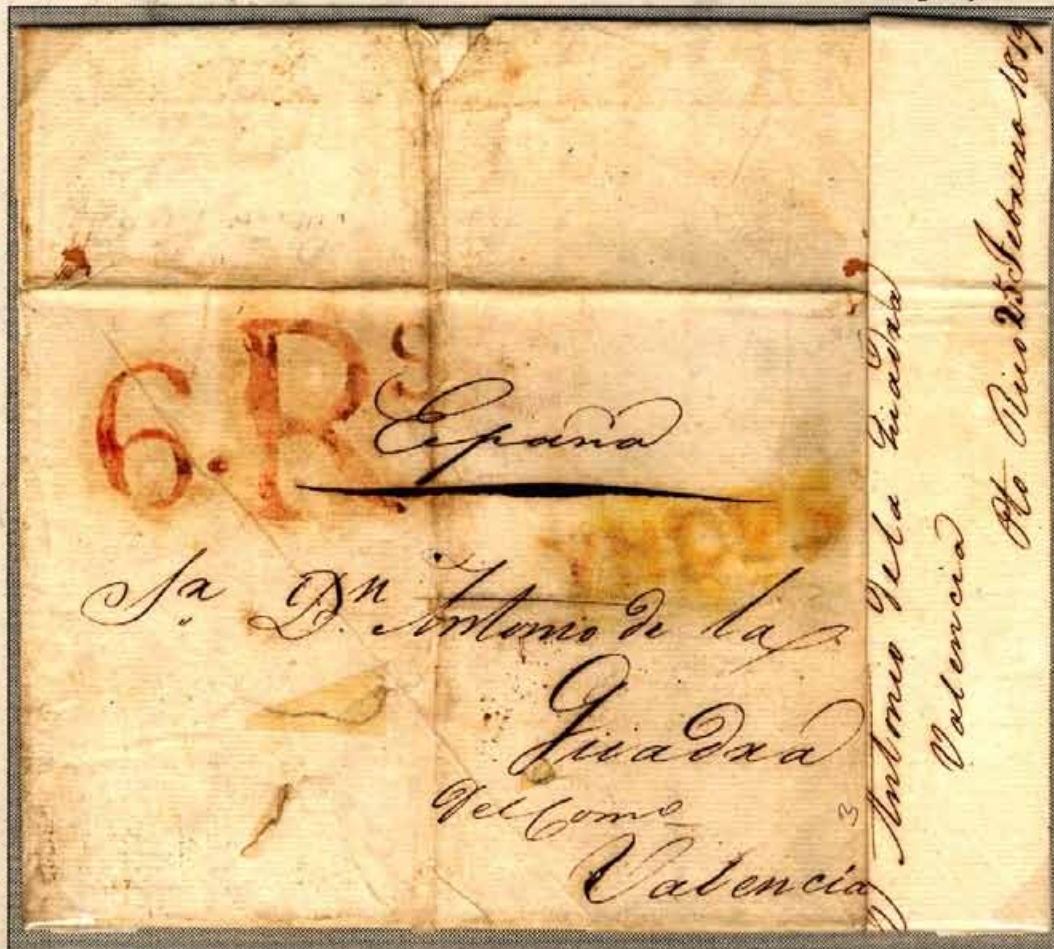 6.Rs
España
Sr. Dn. Antonio de la
Quadra
Del Como
Valencia
3
D Antonio de la Quadra
Valencia
Pto Rico 25 Febrero 1819